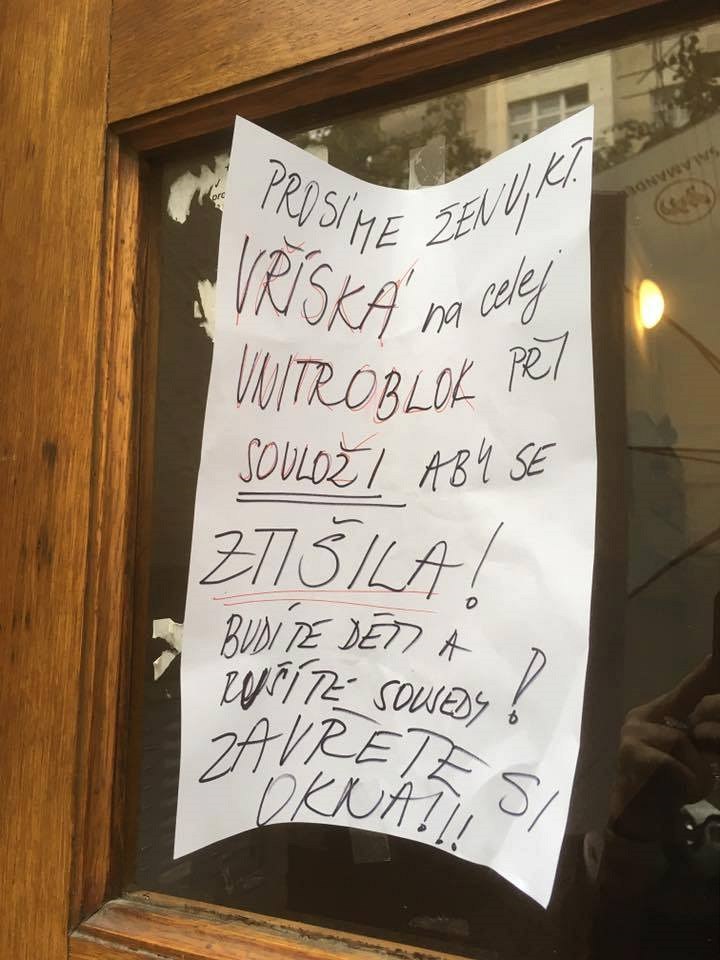 PROSÍME ŽENU, KT.
VŘÍSKÁ na celej
VNITROBLOK PŘI
SOULOŽI ABY SE
ZTIŠILA!
BUDÍTE DĚTI A
RUŠÍTE SOUSEDY!
ZAVŘETE SI
OKNA!!!